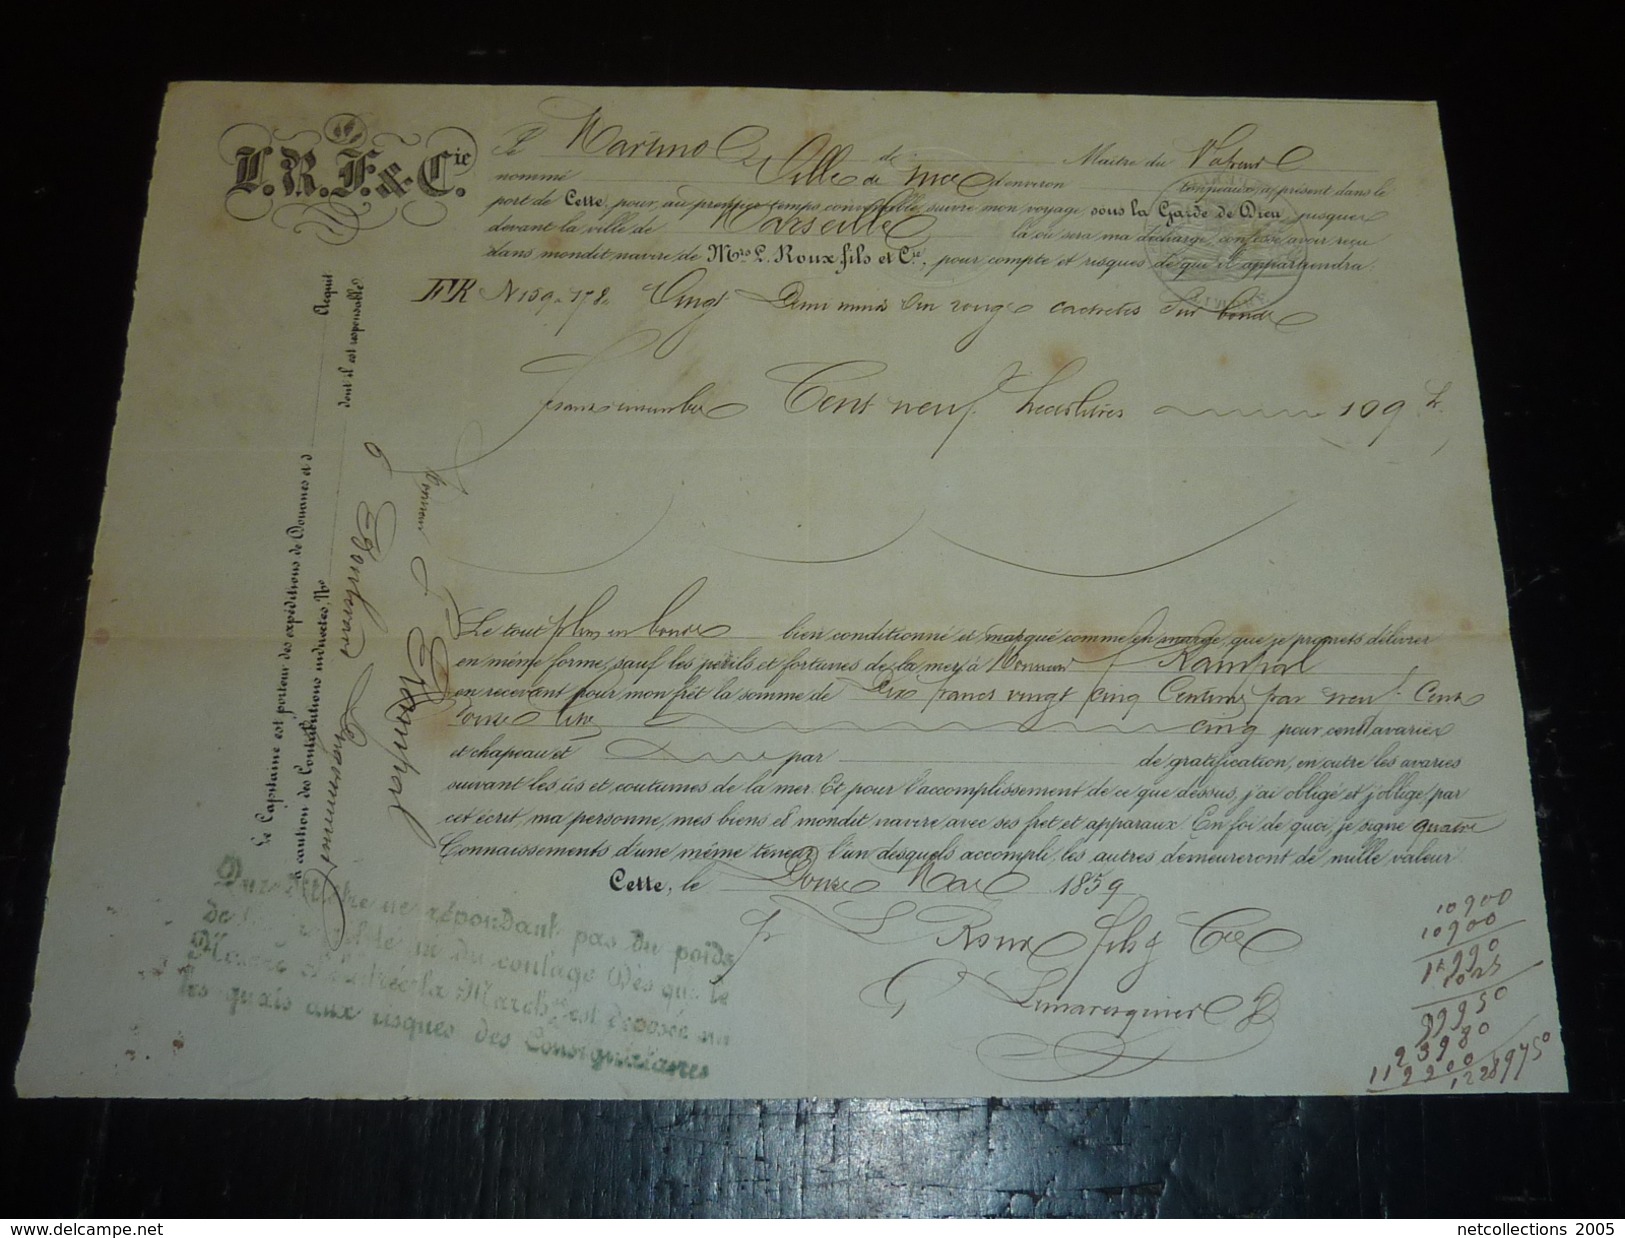 L. R. F. & Cie
Je Martino de Maître du Vapeur
nommé Ville de Nice d'environ tonneaux, à présent dans le
port de Cette, pour, au premier temps convenable, suivre mon voyage, sous la Garde de Dieu, jusques
devant la ville de Marseille là où sera ma décharge, confesse avoir reçu
dans mondit navire de Mrs L. Roux fils et Cie, pour compte et risques de qui il appartiendra:
FK No 159 a 178 Vingt Demi muids Vin rouge cachetés Sur bonde
Cent neuf hectolitres 109 h
Le tout plein en bonde bien conditionné et marqué comme en marge, que je promets délivrer
en même forme, sauf les périls et fortunes de la mer, à Monsieur Rampal
en recevant pour mon frèt la somme de Dix francs vingt cinq Centimes par neuf Cent
Douze litres cinq pour cent avaries
et chapeau et par de gratification, en outre les avaries
suivant les us et coutumes de la mer. Et pour l'accomplissement de ce que dessus, j'ai obligé et j'oblige par
cet écrit, ma personne, mes biens et mondit navire avec ses frèt et apparaux. En foi de quoi, je signe quatre
Connaissements d'une même teneur, l'un desquels accompli, les autres demeureront de nulle valeur.
Cette, le Douze Mai 1859
pr L Roux fils & Cie
Le Capitaine est porteur des expéditions de Douanes et d Acquit
à caution des Contributions indirectes, No dont il est responsable
Monsieur Rampal
ne répondant pas du poids
du coulage dès que le
la March est déposée sur
les quais aux risques des Consignataires
10900
10900
1025
netcollections 2005